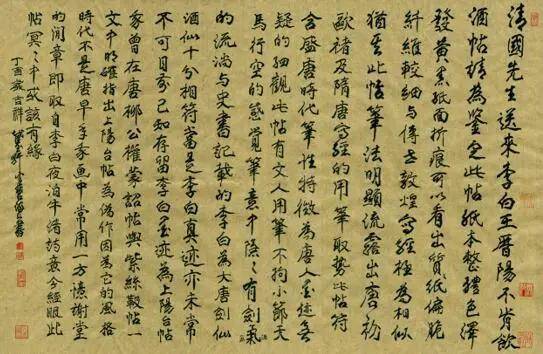 清國先生送來李白王晋陽不肯飲
酒帖請為鉴定此帖紙本整體色澤
發黄黑紙面折痕可以看出質紙偏脆
纤維較細与傳世敦煌寫經極為相似
猶其此帖筆法明顯流露出唐初
歐褚及隋唐寫經的用筆取勢此帖符
合盛唐時代筆性特徵為唐人墨迹無
疑的細觀此帖有文人用筆不拘小節天
馬行空的感覺筆意中隐隐有劍氣
的流淌与史書記載的李白為大唐劍仙
酒仙十分相符當是李白真迹亦未常
不可目前已知存留李白墨迹為上陽台帖
象曾在唐柳公權蒙詔帖與紫絲靸帖一
文中明確指出上陽台帖為偽作因為它的風格
時代不是唐早年象魚中常用一方憶謝堂
的閒章即取自李白夜泊牛渚詩意今經眼此
帖冥冥中或該有緣
丁酉歲吉祥